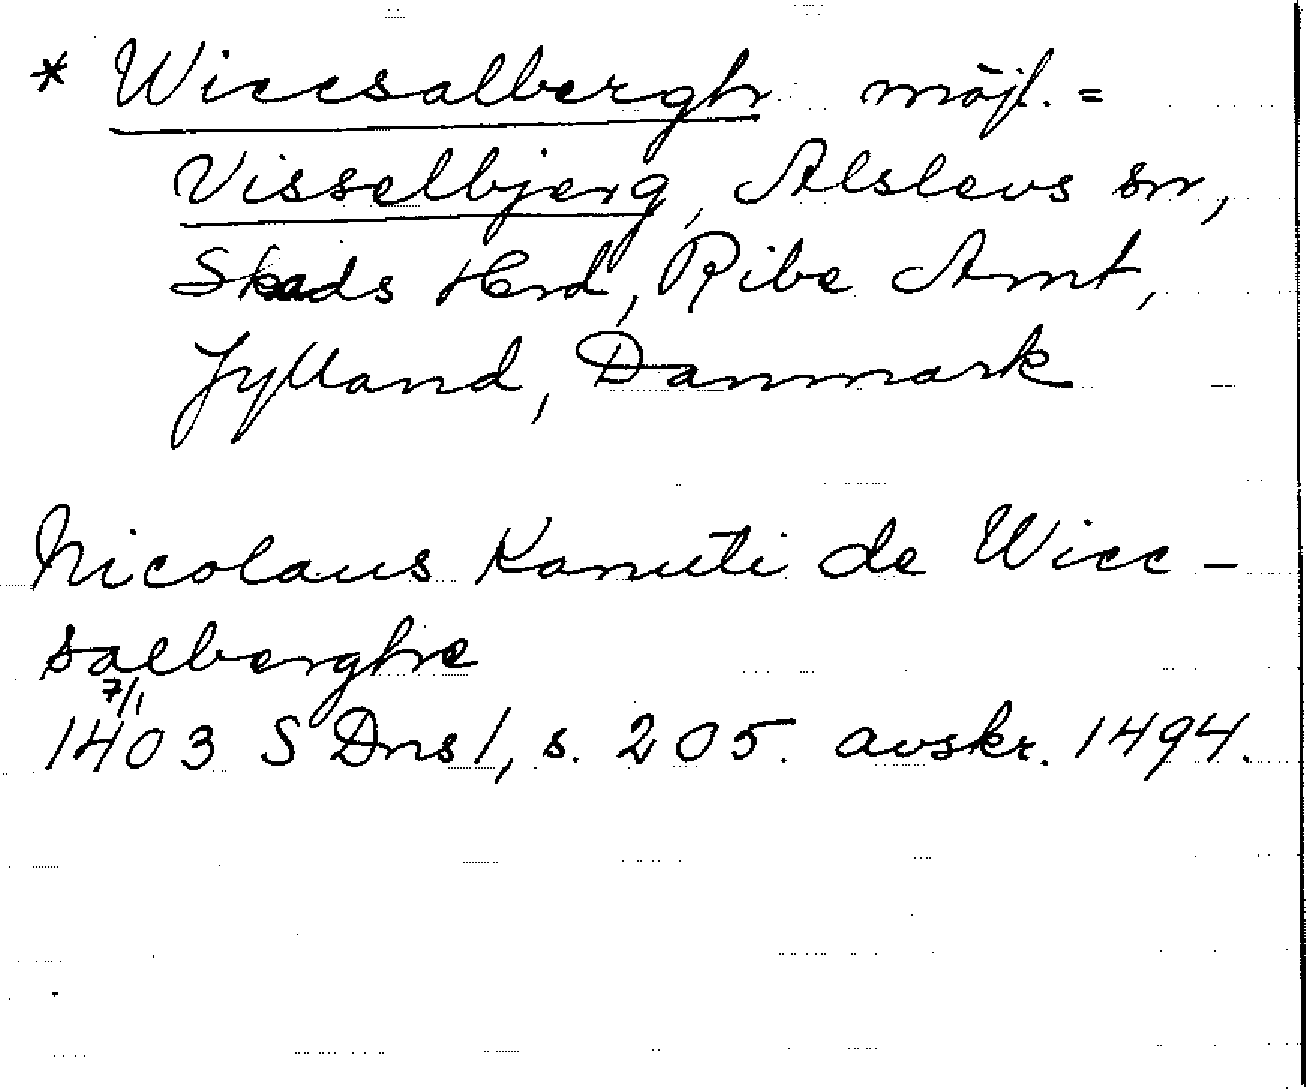 * Wiccsalbergh möjl. =
Visselbjerg, Alslevs sn,
Skads Hrd, Ribe Amt,
Jylland, Danmark
Nicolaus Kanuti de Wicc-
salberghe
7/1
1403 SDns1, s. 205. avskr. 1494.